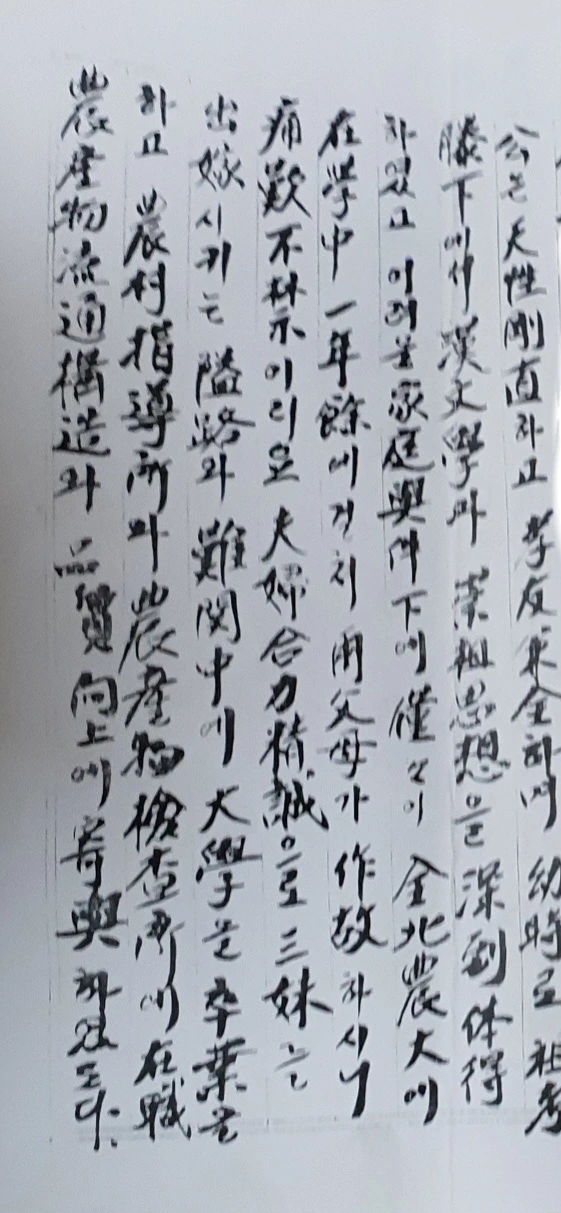 公은 天性剛直하고 孝友兼全하며 幼時로 祖考
膝下에서 漢文學과 崇祖思想을 深到体得
하였고 이러한 家庭與件下에 僅僅이 全北農大에
在學中 一年餘에 걸쳐 兩父母가 作故하시니
痛歎不禁이리요 夫婦合力精誠으로 三妹는
出嫁시키는 隘路와 難関中에 大學을 卒業을
하고 農村指導所와 農産物檢查所에 在職
農産物流通構造와 品質向上에 寄與하였도다.